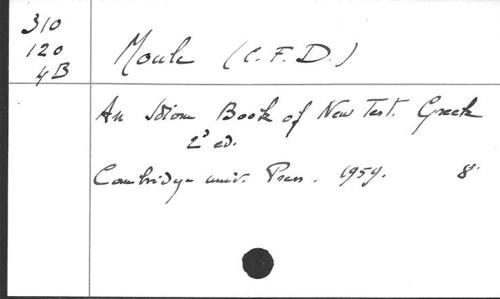 310
120
4B
Moule (C. F. D.)
An Idiom Book of New Test. Greek
2ᵈ ed.
Cambridge univ. Press. 1959. 8°